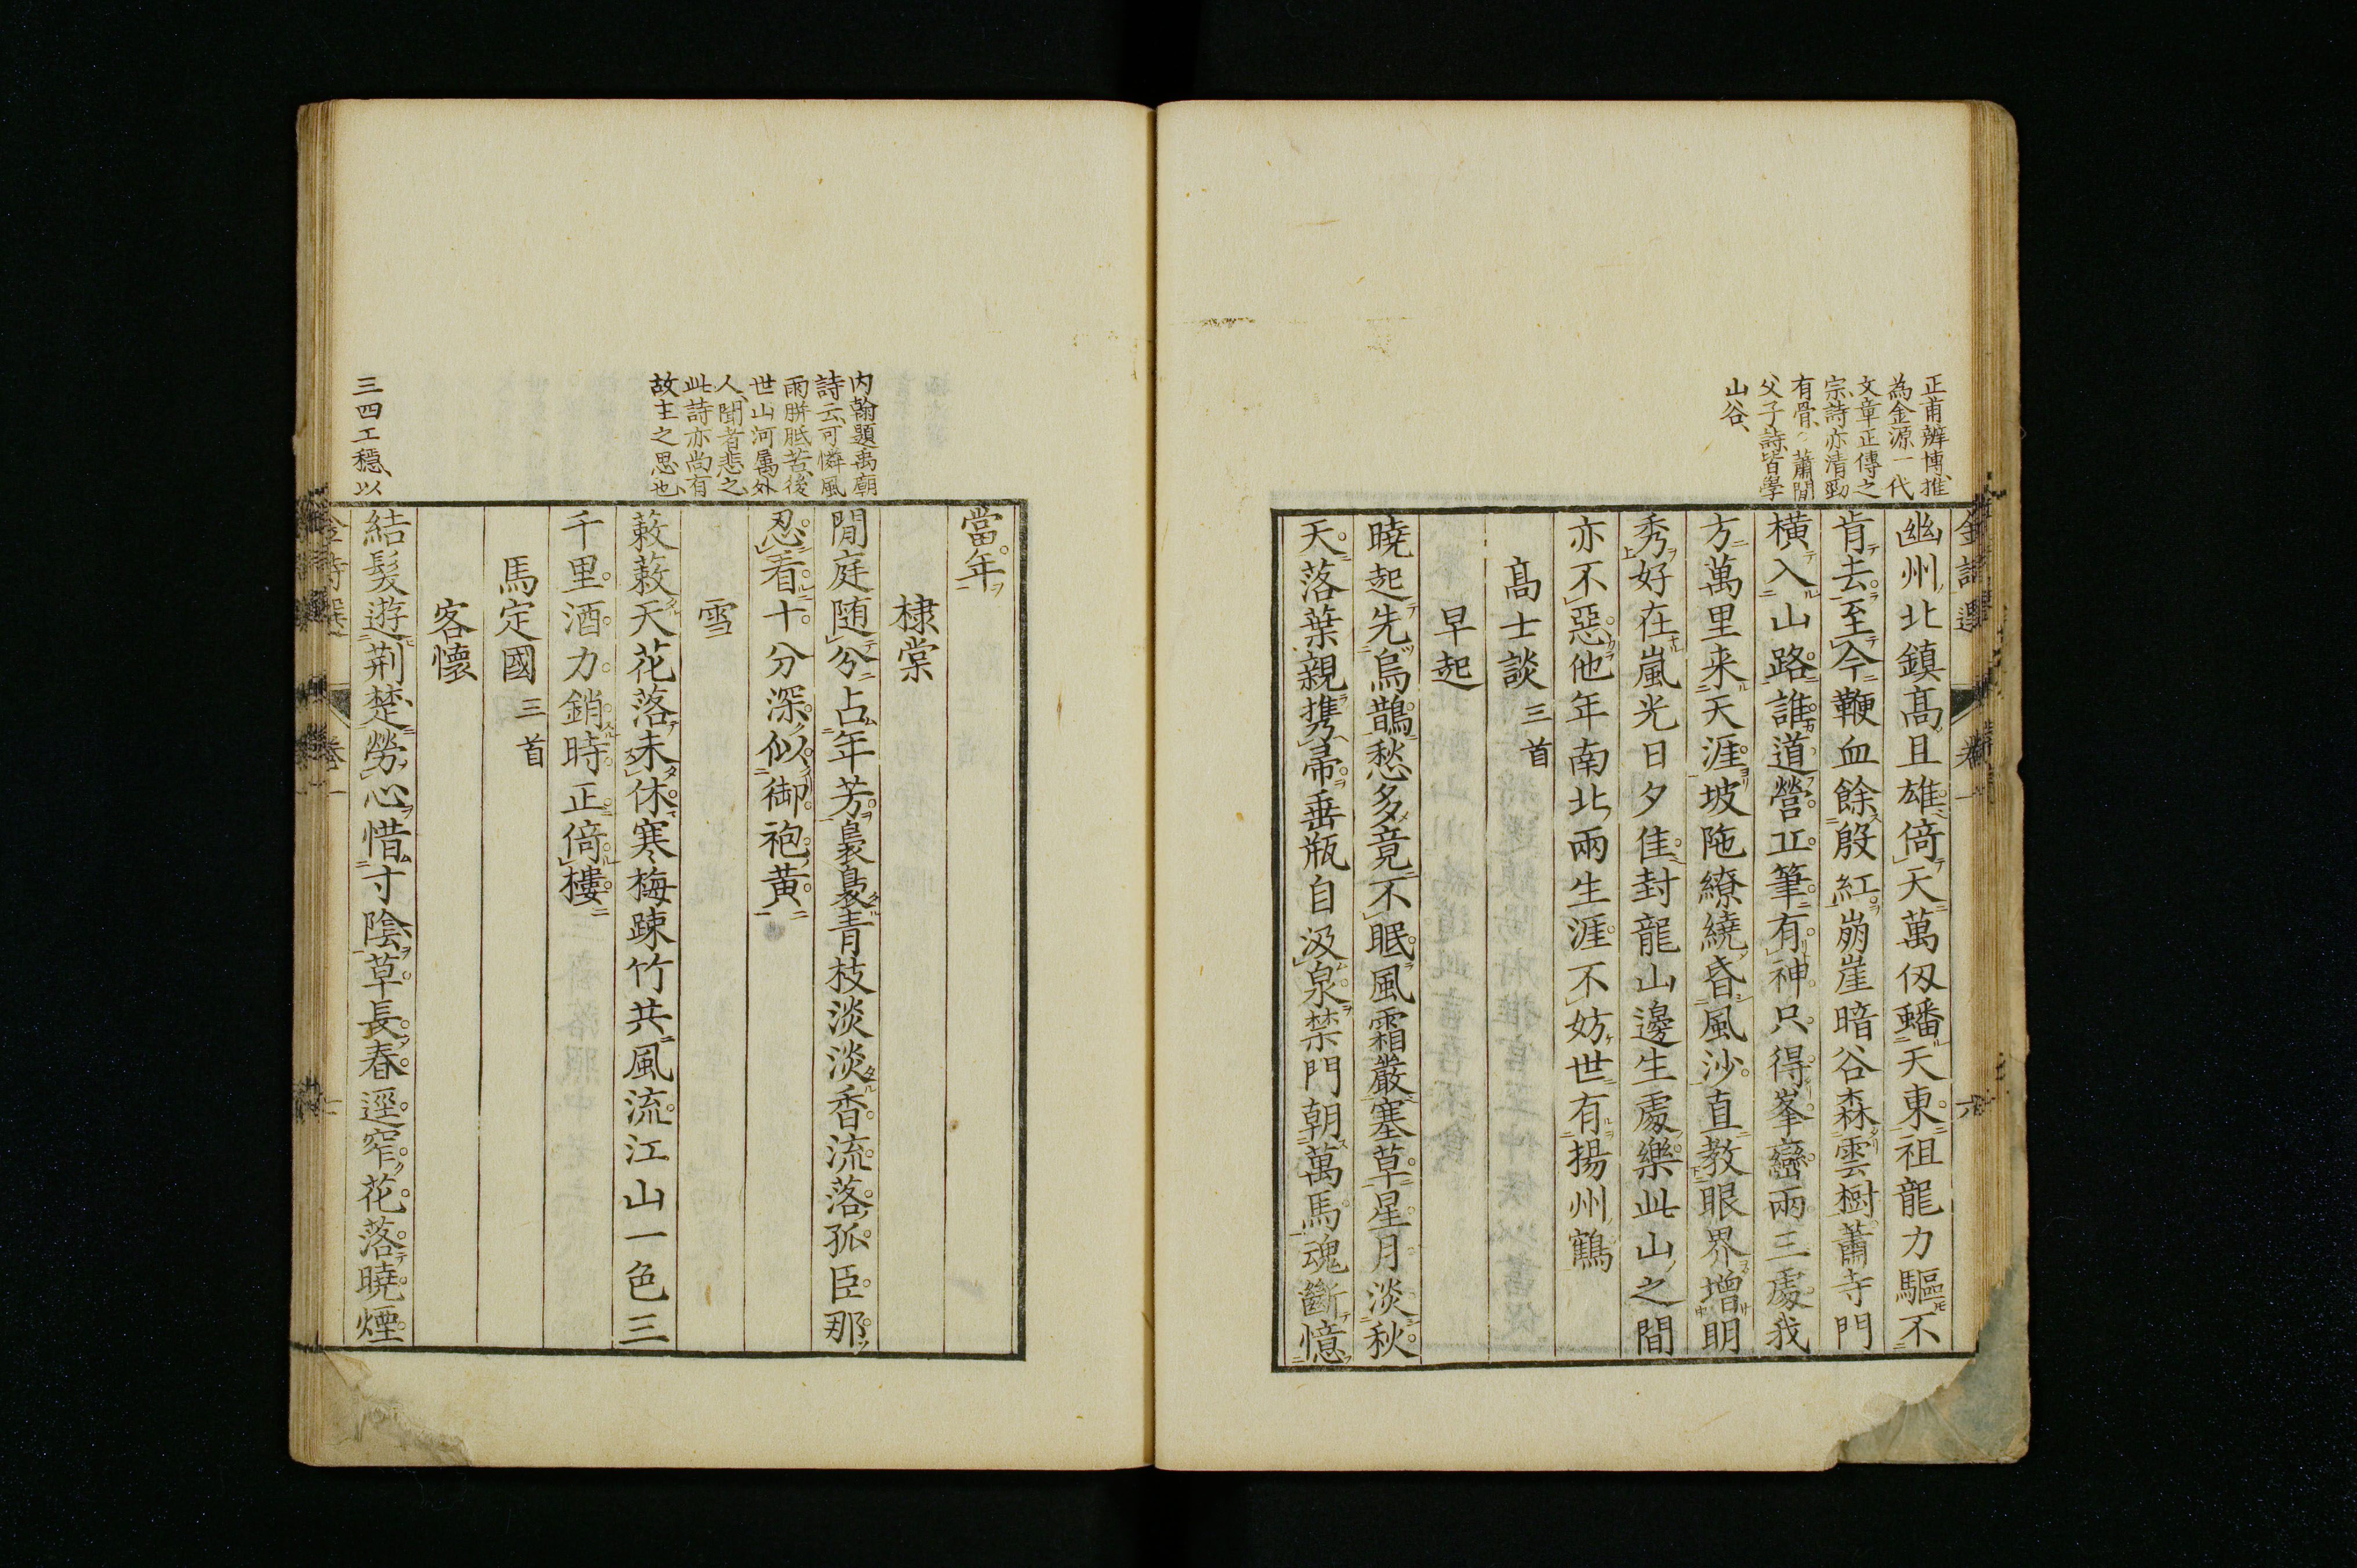 正甫辨博、推
為金源一代
文章正傳之
宗、詩亦清勁
有骨、蕭閒
父子詩皆學
山谷、
幽州北鎮高且雄倚天萬仭蟠天東祖龍力驅不
肯去至今鞭血餘殷紅崩崖暗谷森雲樹蕭寺門
横入山路誰道營丘筆有神只得峯巒兩三處我
方萬里来天涯坡陁繚繞昏風沙直教眼界増明
秀好在嵐光日夕佳封龍山邊生處樂此山之間
亦不惡他年南北兩生涯不妨世有揚州鶴
高士談 三首
早起
曉起先烏鵲愁多竟不眠風霜嚴塞草星月淡秋
天落葉親携帚垂瓶自汲泉禁門朝萬馬魂斷憶
内翰題禹廟
詩云、可憐風
雨胼胝苦、後
世山河属外
人、聞者悲之、
此詩亦尚有
故主之思也、
三四工穏、以
當年
棣棠
閒庭随分占年芳裊裊青枝淡淡香流落孤臣那
忍看十分深似御袍黄
雪
蔌蔌天花落未休寒梅疎竹共風流江山一色三
千里酒力銷時正倚樓
馬定國 三首
客懷
結髪遊荆楚勞心惜寸陰草長春逕窄花落曉煙